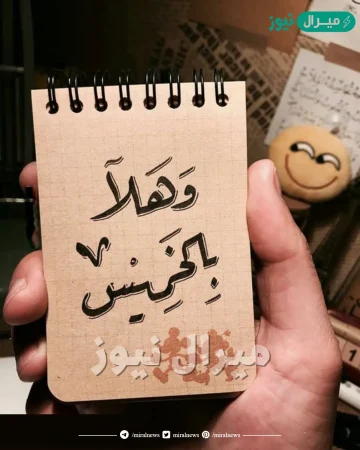 ميرال نيوز
وَهَلآ
بِالخَمِيسْ
ميرال نيوز
/miralnews miralnews /miralnews